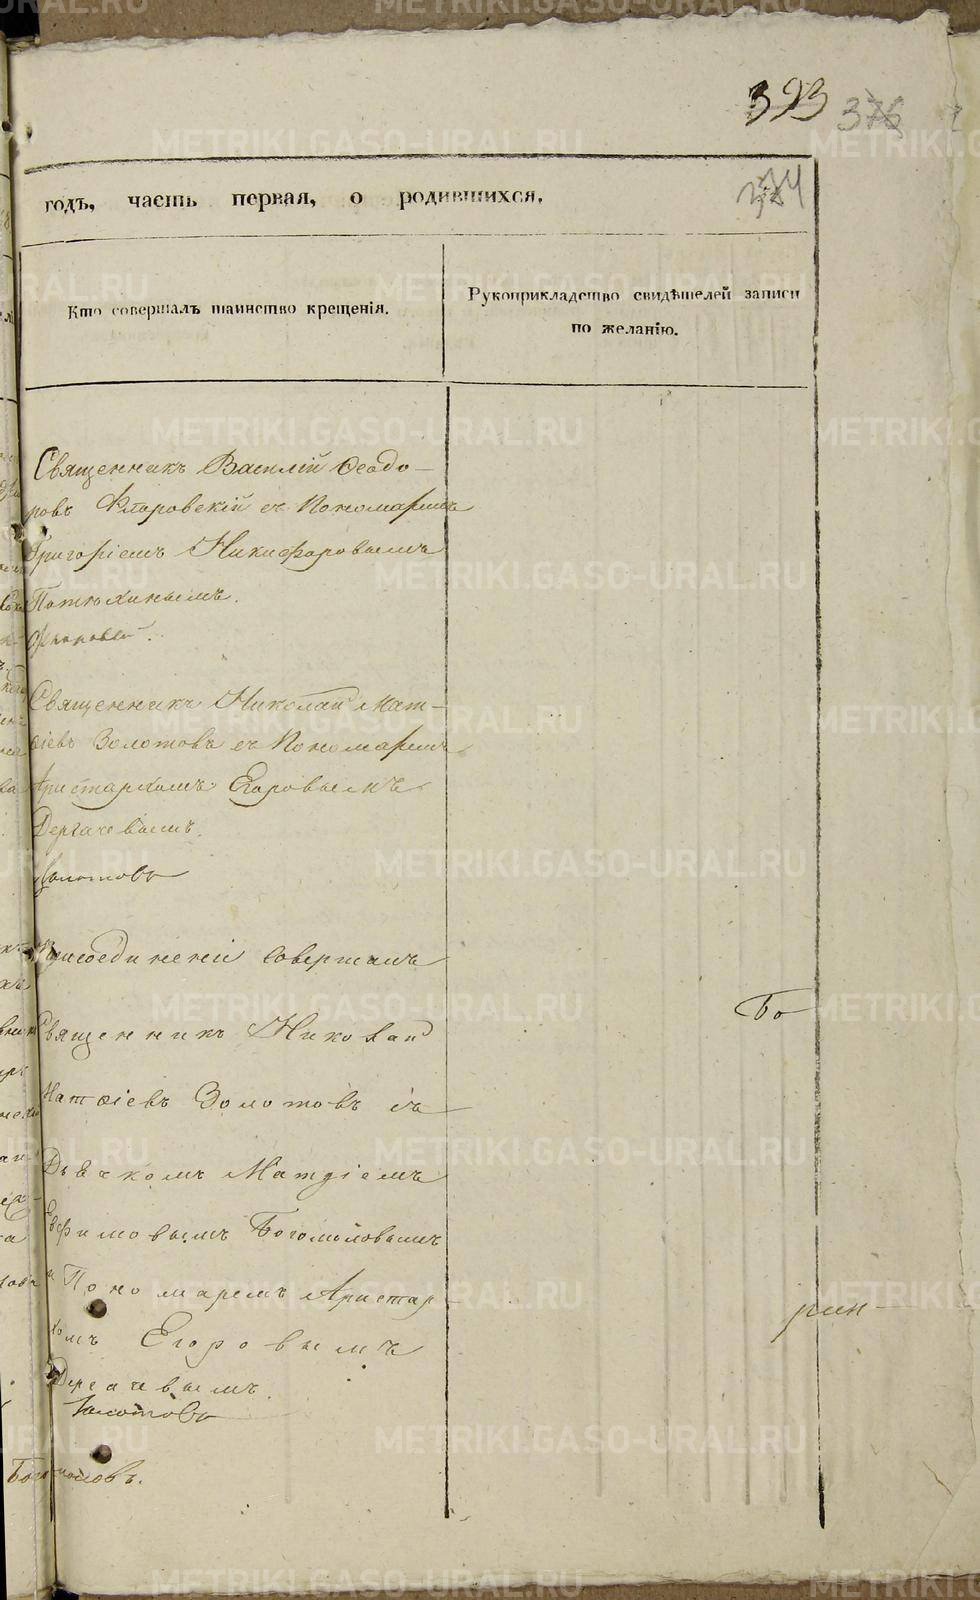 393 376
374
годъ, часть первая, о родившихся.
Кто совершалъ таинство крещенія.
Рукоприкладство свидѣтелей записи
по желанію.
Священникъ Василій Ѳеодо-
ровъ Флоровскій съ Пономаремъ
Григоріемъ Никифоровымъ
Потюхинымъ.
Священникъ Николай Мат-
ѳіевъ Золотовъ съ Пономаремъ
Аристархомъ Егоровымъ
Дергачевымъ.
Золотовъ
Присоединеніе совершалъ
Священникъ Николай
Матѳіевъ Золотовъ съ
Дьячкомъ Матѳіемъ
Евфимовымъ Богомоловымъ
и Пономаремъ Аристар-
хомъ Егоровымъ
Дергачевымъ.
Золотовъ
Богомоловъ.
Бо
рин-
METRIKI.GASO-URAL.RU